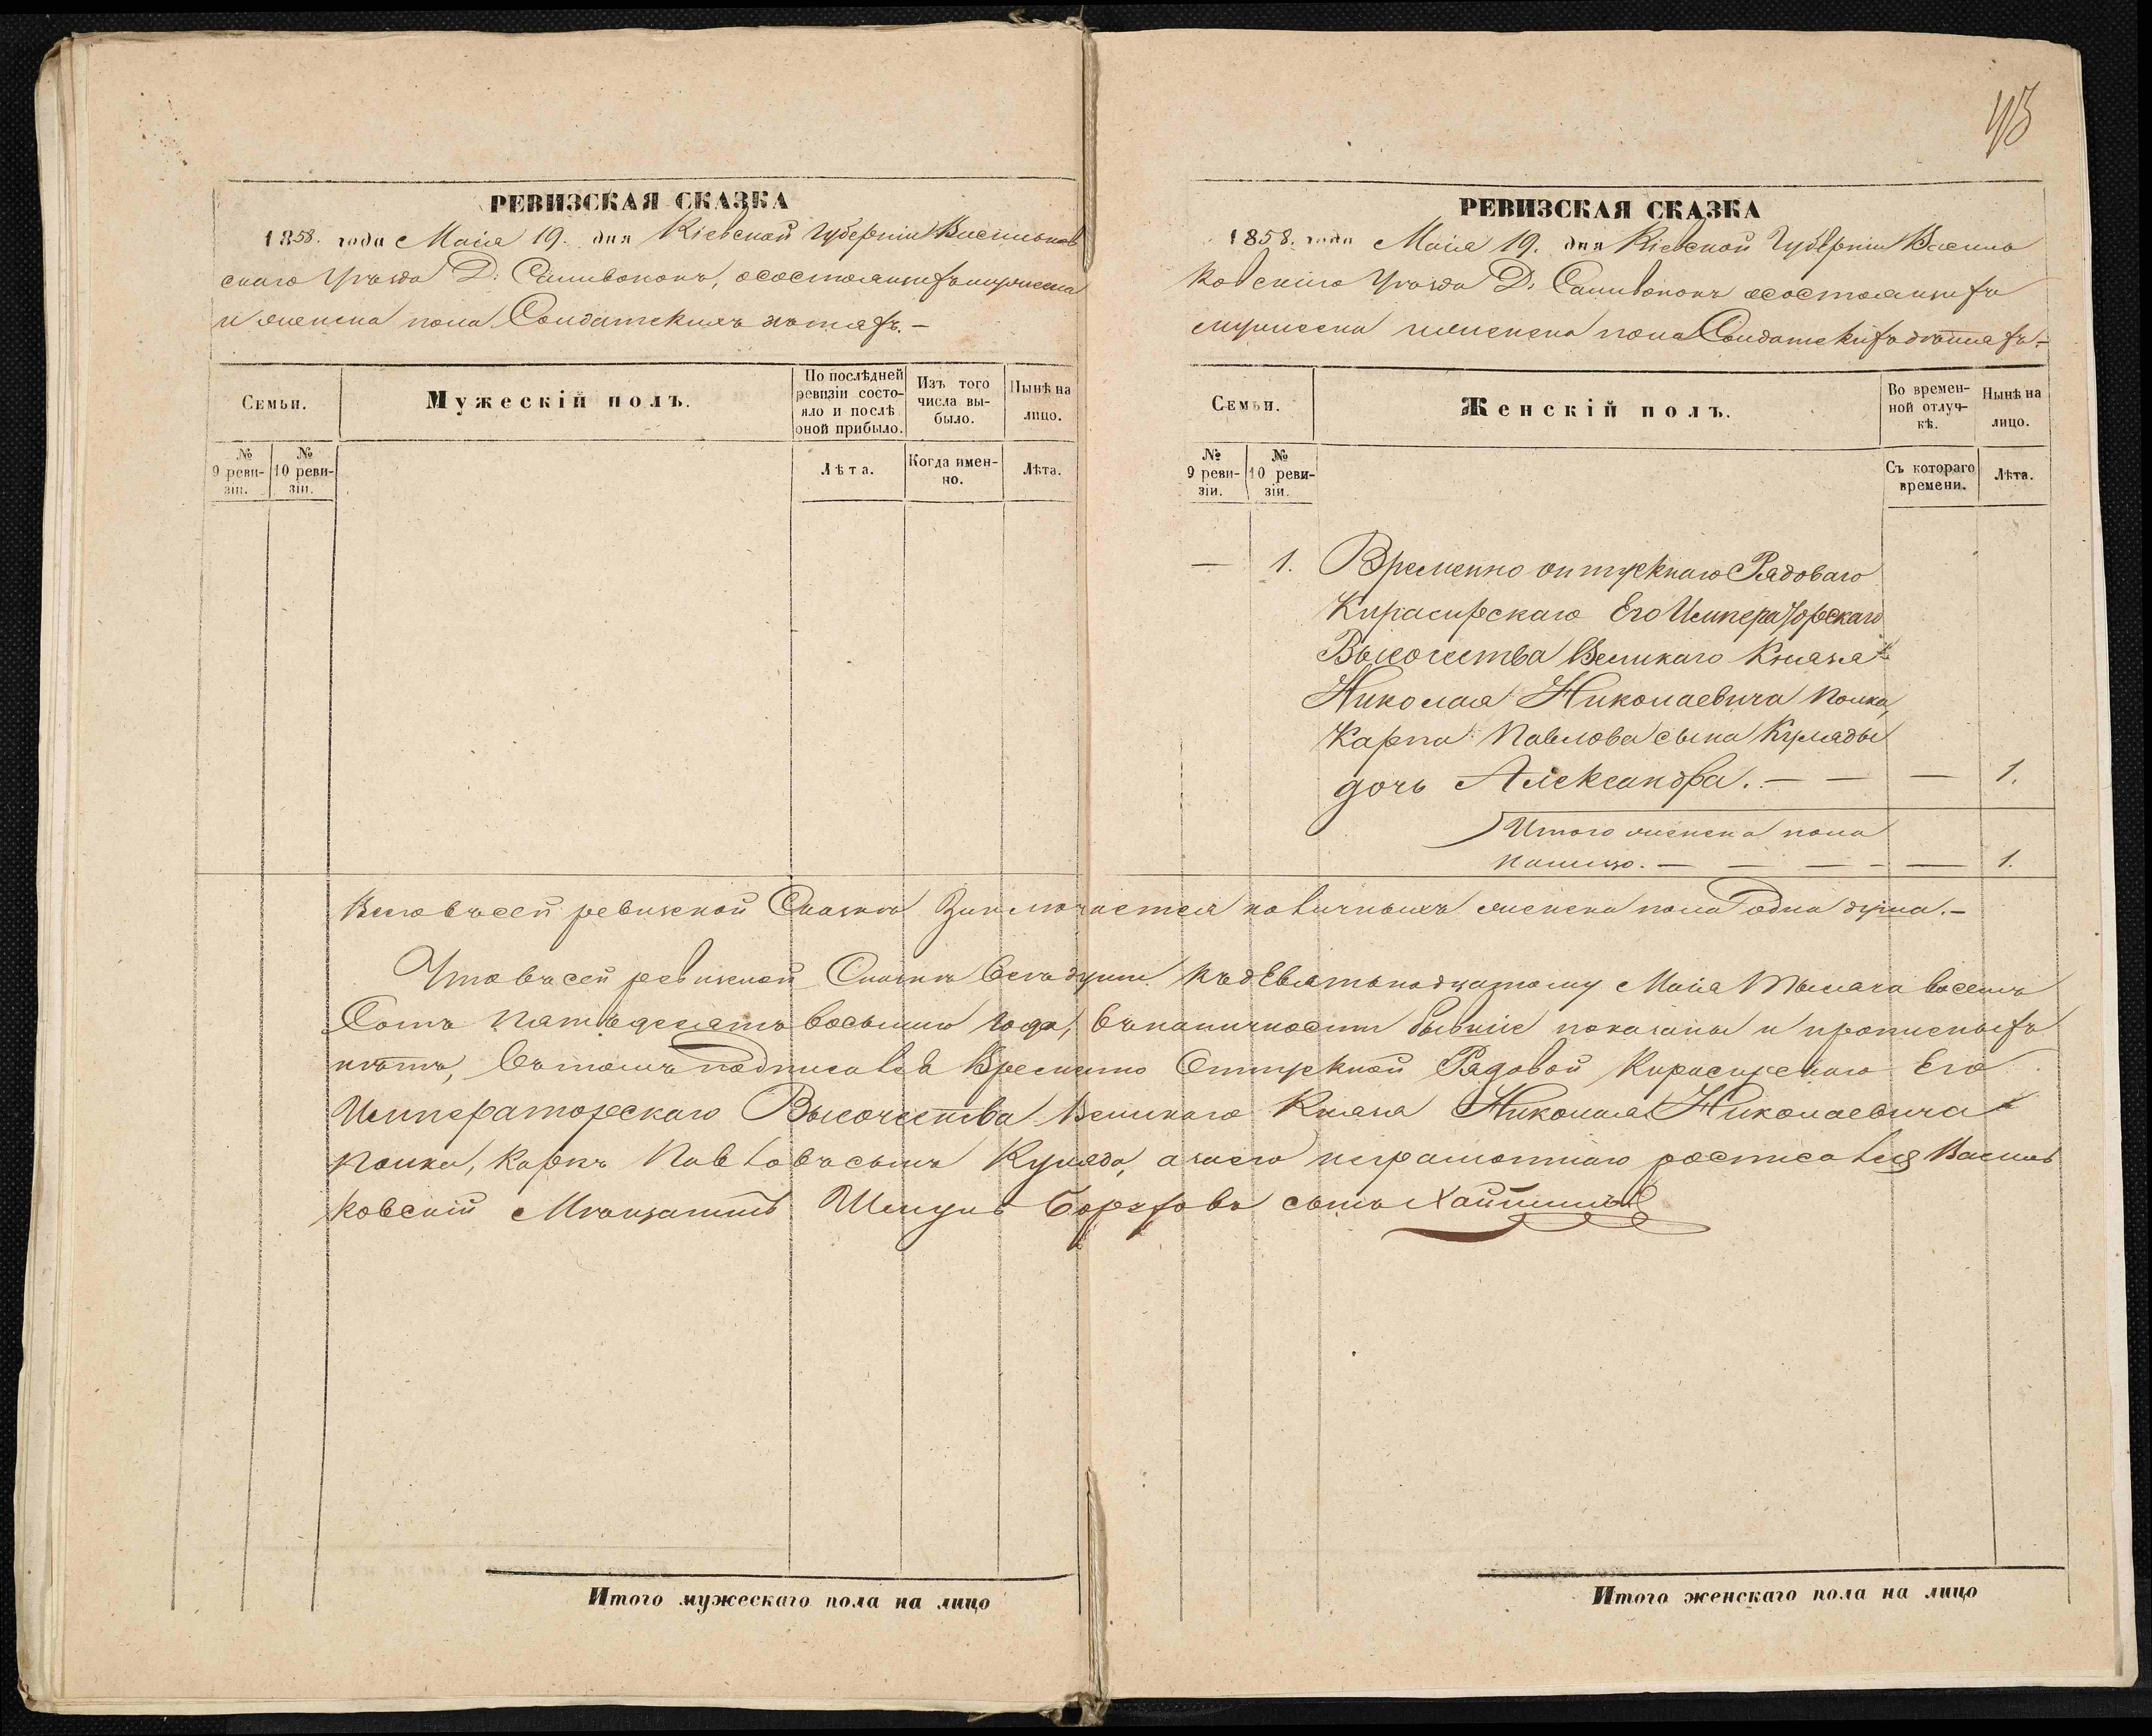 43
РЕВИЗСКАЯ СКАЗКА
1858. года Маія 19. дня Кіевской Губерніи Васильков
скаго Уѣзда Д. Саливонокъ, осостоящихъ мужеска
и женска пола Солдатскихъ дѣтяхъ. —
Семьи.
Мужескій полъ.
По послѣдней ревизіи состояло и послѣ оной прибыло.
Изъ того числа выбыло.
Нынѣ на лицо.
№ 9 ревизіи.
№ 10 ревизіи.
Лѣта.
Когда именно.
Лѣта.
РЕВИЗСКАЯ СКАЗКА
1858. года Маія 19. дня Кіевской Губерніи Василь
ковскаго Уѣзда Д. Саливонокъ осостоящихъ
мужеска и женска пола Солдатскихъ дѣтяхъ. —
Семьи.
Женскій полъ.
Во временной отлучкѣ.
Нынѣ на лицо.
№ 9 ревизіи.
№ 10 ревизіи.
Съ котораго времени.
Лѣта.
— 1. Временно отпускнаго Рядоваго
Кирасирскаго Его Императорскаго
Высочества Великаго Князя
Николая Николаевича полка,
Карпа Павлова сына Куляды
дочь Александра. — — — 1.
Итого женска пола
налицо. — — — — — 1.
Всего въ сей ревизской Сказкѣ Заключается наличныхъ женска пола одна душа. —
Что въ сей ревизской Сказкѣ всѣ души къ девятьнадцатому Маія Тысяча восемь
Сотъ пятьдесятъ восьмого года, въ наличности бывшіе показаны и прописныхъ
нѣтъ, въ томъ подписался Временно Отпускной Рядовой Кирасирскаго Его
Императорскаго Высочества Великаго Князя Николая Николаевича
полка, Карпъ Павловъ сынъ Куляда, а за его неграмотнаго росписался Василь
ковскій Мѣщанинъ Шмуль сынъ
Итого мужескаго пола на лицо
Итого женскаго пола на лицо